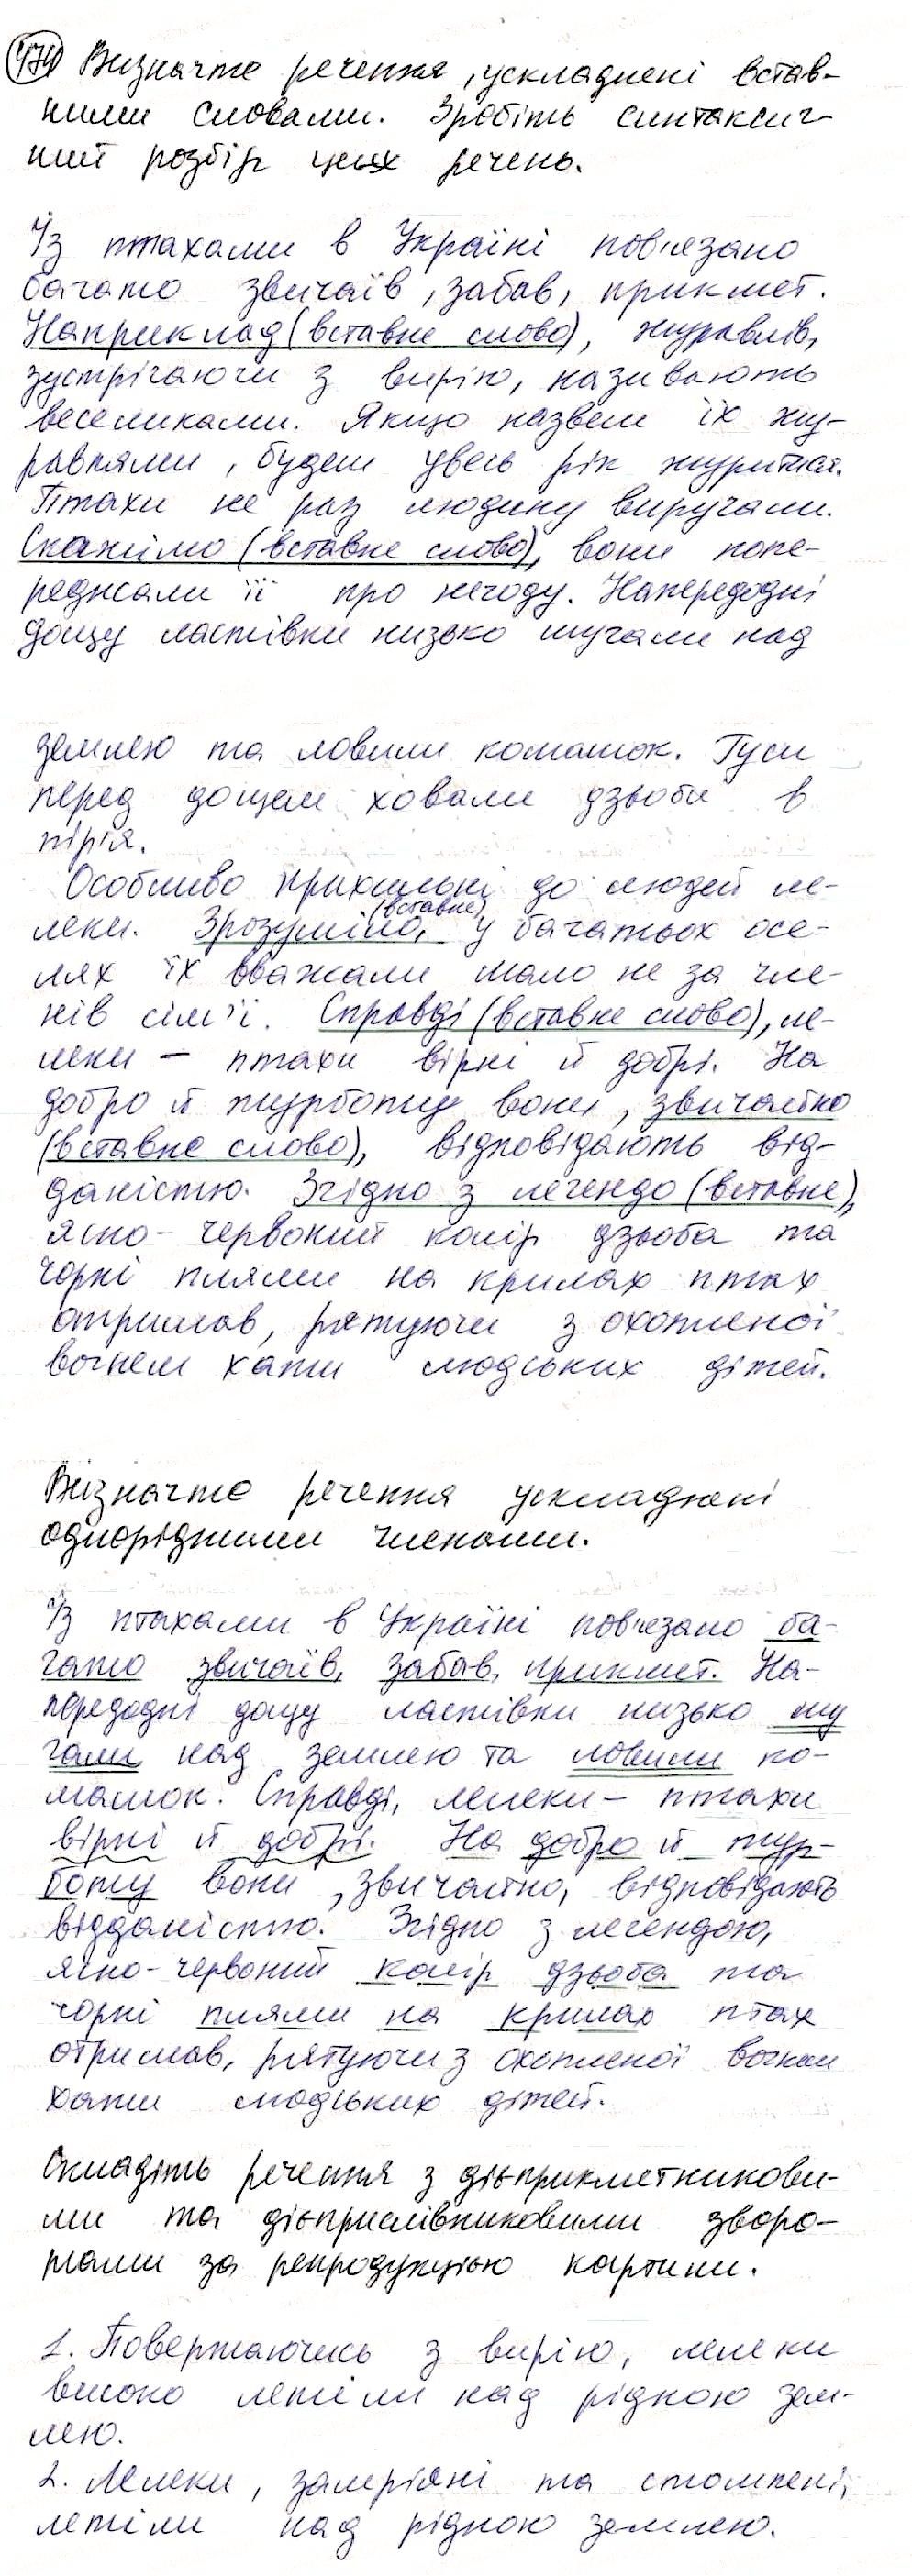 474 Визначте речення, ускладнені встав-
ними словами. Зробіть синтаксич-
ний розбір цих речень.
Із птахами в Україні пов'язано
багато звичаїв, забав, прикмет.
Наприклад (вставне слово), журавлів,
зустрічаючи з вирію, називають
веселиками. Якщо назвеш їх жу-
равлями, будеш увесь рік журитися.
Птахи не раз людину виручали.
Скажімо (вставне слово), вони попе-
реджали її про негоду. Напередодні
дощу ластівки низько шугали над
землею та ловили комашок. Гуси
перед дощем ховали дзьоби в
пір'я.
Особливо прихильні до людей ле-
леки. Зрозуміло, (вставне) у багатьох осе-
лях їх вважали мало не за чле-
нів сім'ї. Справді (вставне слово), ле-
леки – птахи вірні й добрі. На
добро й турботу вони, звичайно
(вставне слово), відповідають від-
даністю. Згідно з легендо (вставне),
ясно-червоний колір дзьоба та
чорні плями на крилах птах
отримав, рятуючи з охопленої
вогнем хати людських дітей.
Визначте речення ускладнені
однорідними членами.
Із птахами в Україні пов'язано ба-
гато звичаїв, забав, прикмет. На-
передодні дощу ластівки низько шу
гали над землею та ловили ко-
машок. Справді, лелеки – птахи
вірні й добрі. На добро й тур-
боту вони, звичайно, відповідають
відданістю. Згідно з легендою,
ясно-червоний колір дзьоба та
чорні плями на крилах птах
отримав, рятуючи з охопленої вогнем
хати людських дітей.
Складіть речення з дієприкметникови-
ми та дієприслівниковими зворо-
тами за репродукцією картини.
1. Повертаючись з вирію, лелеки
високо летіли над рідною зем-
лею.
2. Лелеки, замріяні та стомлені,
летіли над рідною землею.